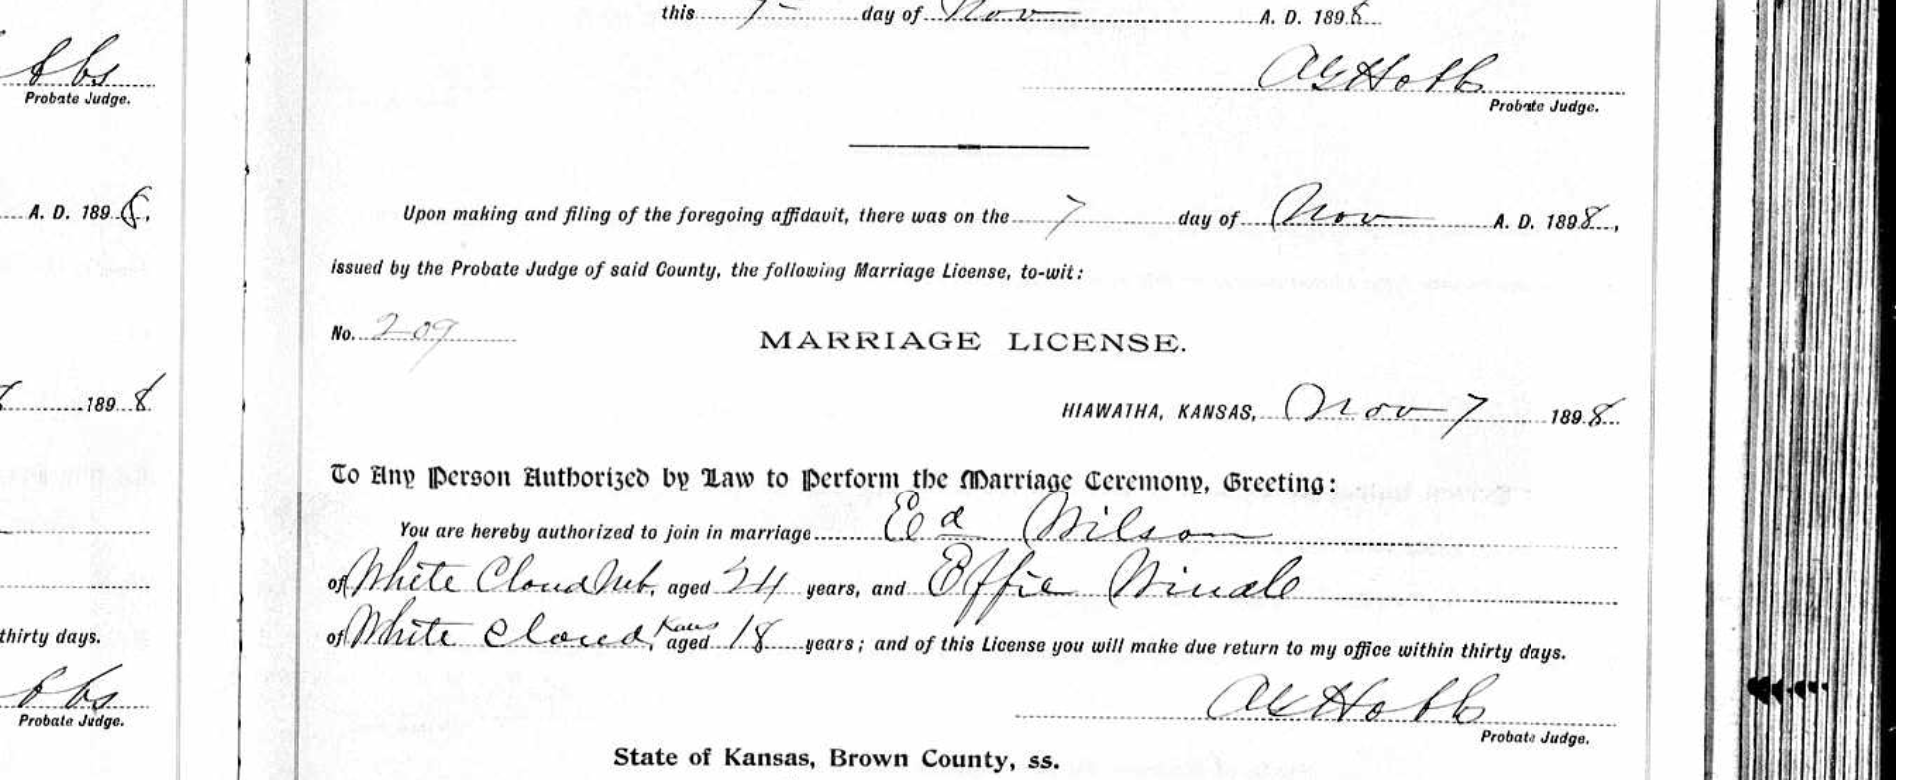 this 7 day of Nov A. D. 1898
bbs
Probate Judge.
Hobbs
Probate Judge.
A. D. 1898,
Upon making and filing of the foregoing affidavit, there was on the 7 day of Nov A. D. 1898,
issued by the Probate Judge of said County, the following Marriage License, to-wit:
No. 209
MARRIAGE LICENSE.
1898
HIAWATHA, KANSAS, Nov 7 1898
To Any Person Authorized by Law to Perform the Marriage Ceremony, Greeting:
You are hereby authorized to join in marriage Ed Wilson
of White Cloud Neb, aged 24 years, and Effie
of White Cloud, Kans aged 18 years; and of this License you will make due return to my office within thirty days.
thirty days.
bbs
Probate Judge.
Hobbs
Probate Judge.
State of Kansas, Brown County, ss.